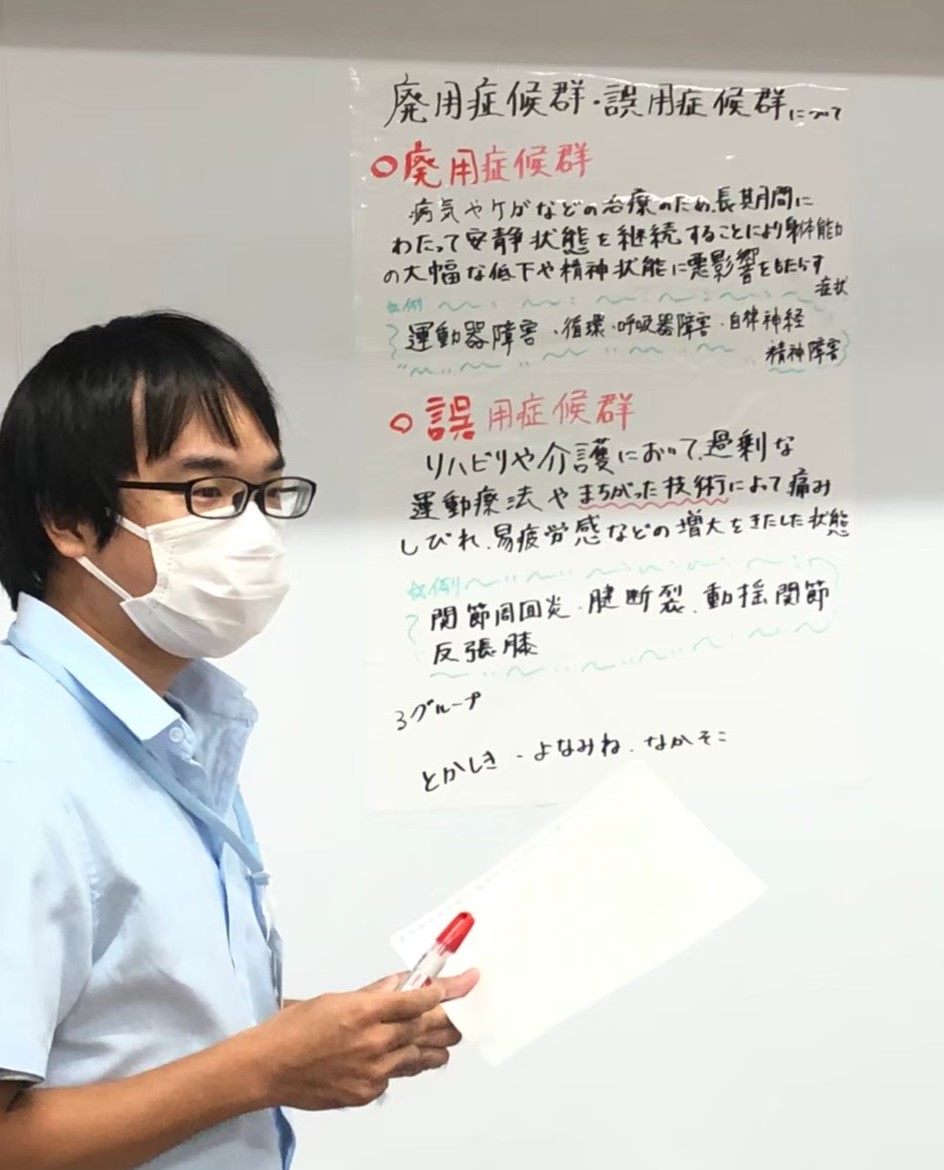 廃用症候群・誤用症候群について
○廃用症候群
病気やケガなどの治療のため、長期間に
わたって安静状態を継続することにより身体能力
の大幅な低下や精神状態に悪影響をもたらす
症状
症例
運動器障害・循環・呼吸器障害・自律神経
精神障害
○誤用症候群
リハビリや介護において、過剰な
運動療法やまちがった技術によって痛み
しびれ、易疲労感などの増大をきたした状態
症例
関節周囲炎、腱断裂、動揺関節
反張膝
3グループ
とかしき・よなみね、なかそこ